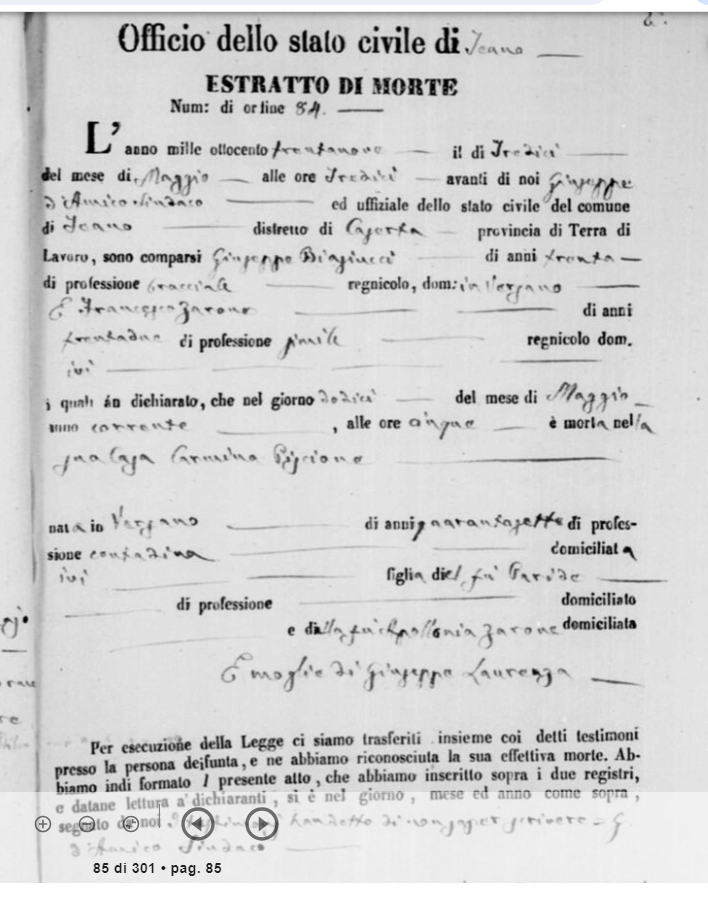 Officio dello stato civile di Teano
ESTRATTO DI MORTE
Num: di ordine 84.
L'anno mille ottocento trentanove il di Tredici
del mese di Maggio alle ore Tredici avanti di noi Giuseppe
d'Amico Sindaco ed uffiziale dello stato civile del comune
di Teano distretto di Caserta provincia di Terra di
Lavoro, sono comparsi Giuseppe Biasiucci di anni trenta
di professione bracciale regnicolo, dom: in Versano
E Francesco Zarone di anni
trentadue di professione simile regnicolo dom.
ivi
i quali án dichiarato, che nel giorno dodici del mese di Maggio
anno corrente, alle ore cinque è morta nella
sua Casa Carmina Piscione
nata in Versano di anni quarantasette di profes-
sione contadina domiciliata
ivi figlia del fu Paride
di professione domiciliato
e della fu Apollonia Zarone domiciliata
E moglie di Giuseppe Laurenza
Per esecuzione della Legge ci siamo trasferiti insieme coi detti testimoni
presso la persona defunta, e ne abbiamo riconosciuta la sua effettiva morte. Ab-
biamo indi formato l presente atto, che abbiamo inscritto sopra i due registri,
e datane lettura a' dichiaranti, si è nel giorno, mese ed anno come sopra,
segnato da noi hanno detto di non saper scrivere = G
d'Amico Sindaco
85 di 301 • pag. 85